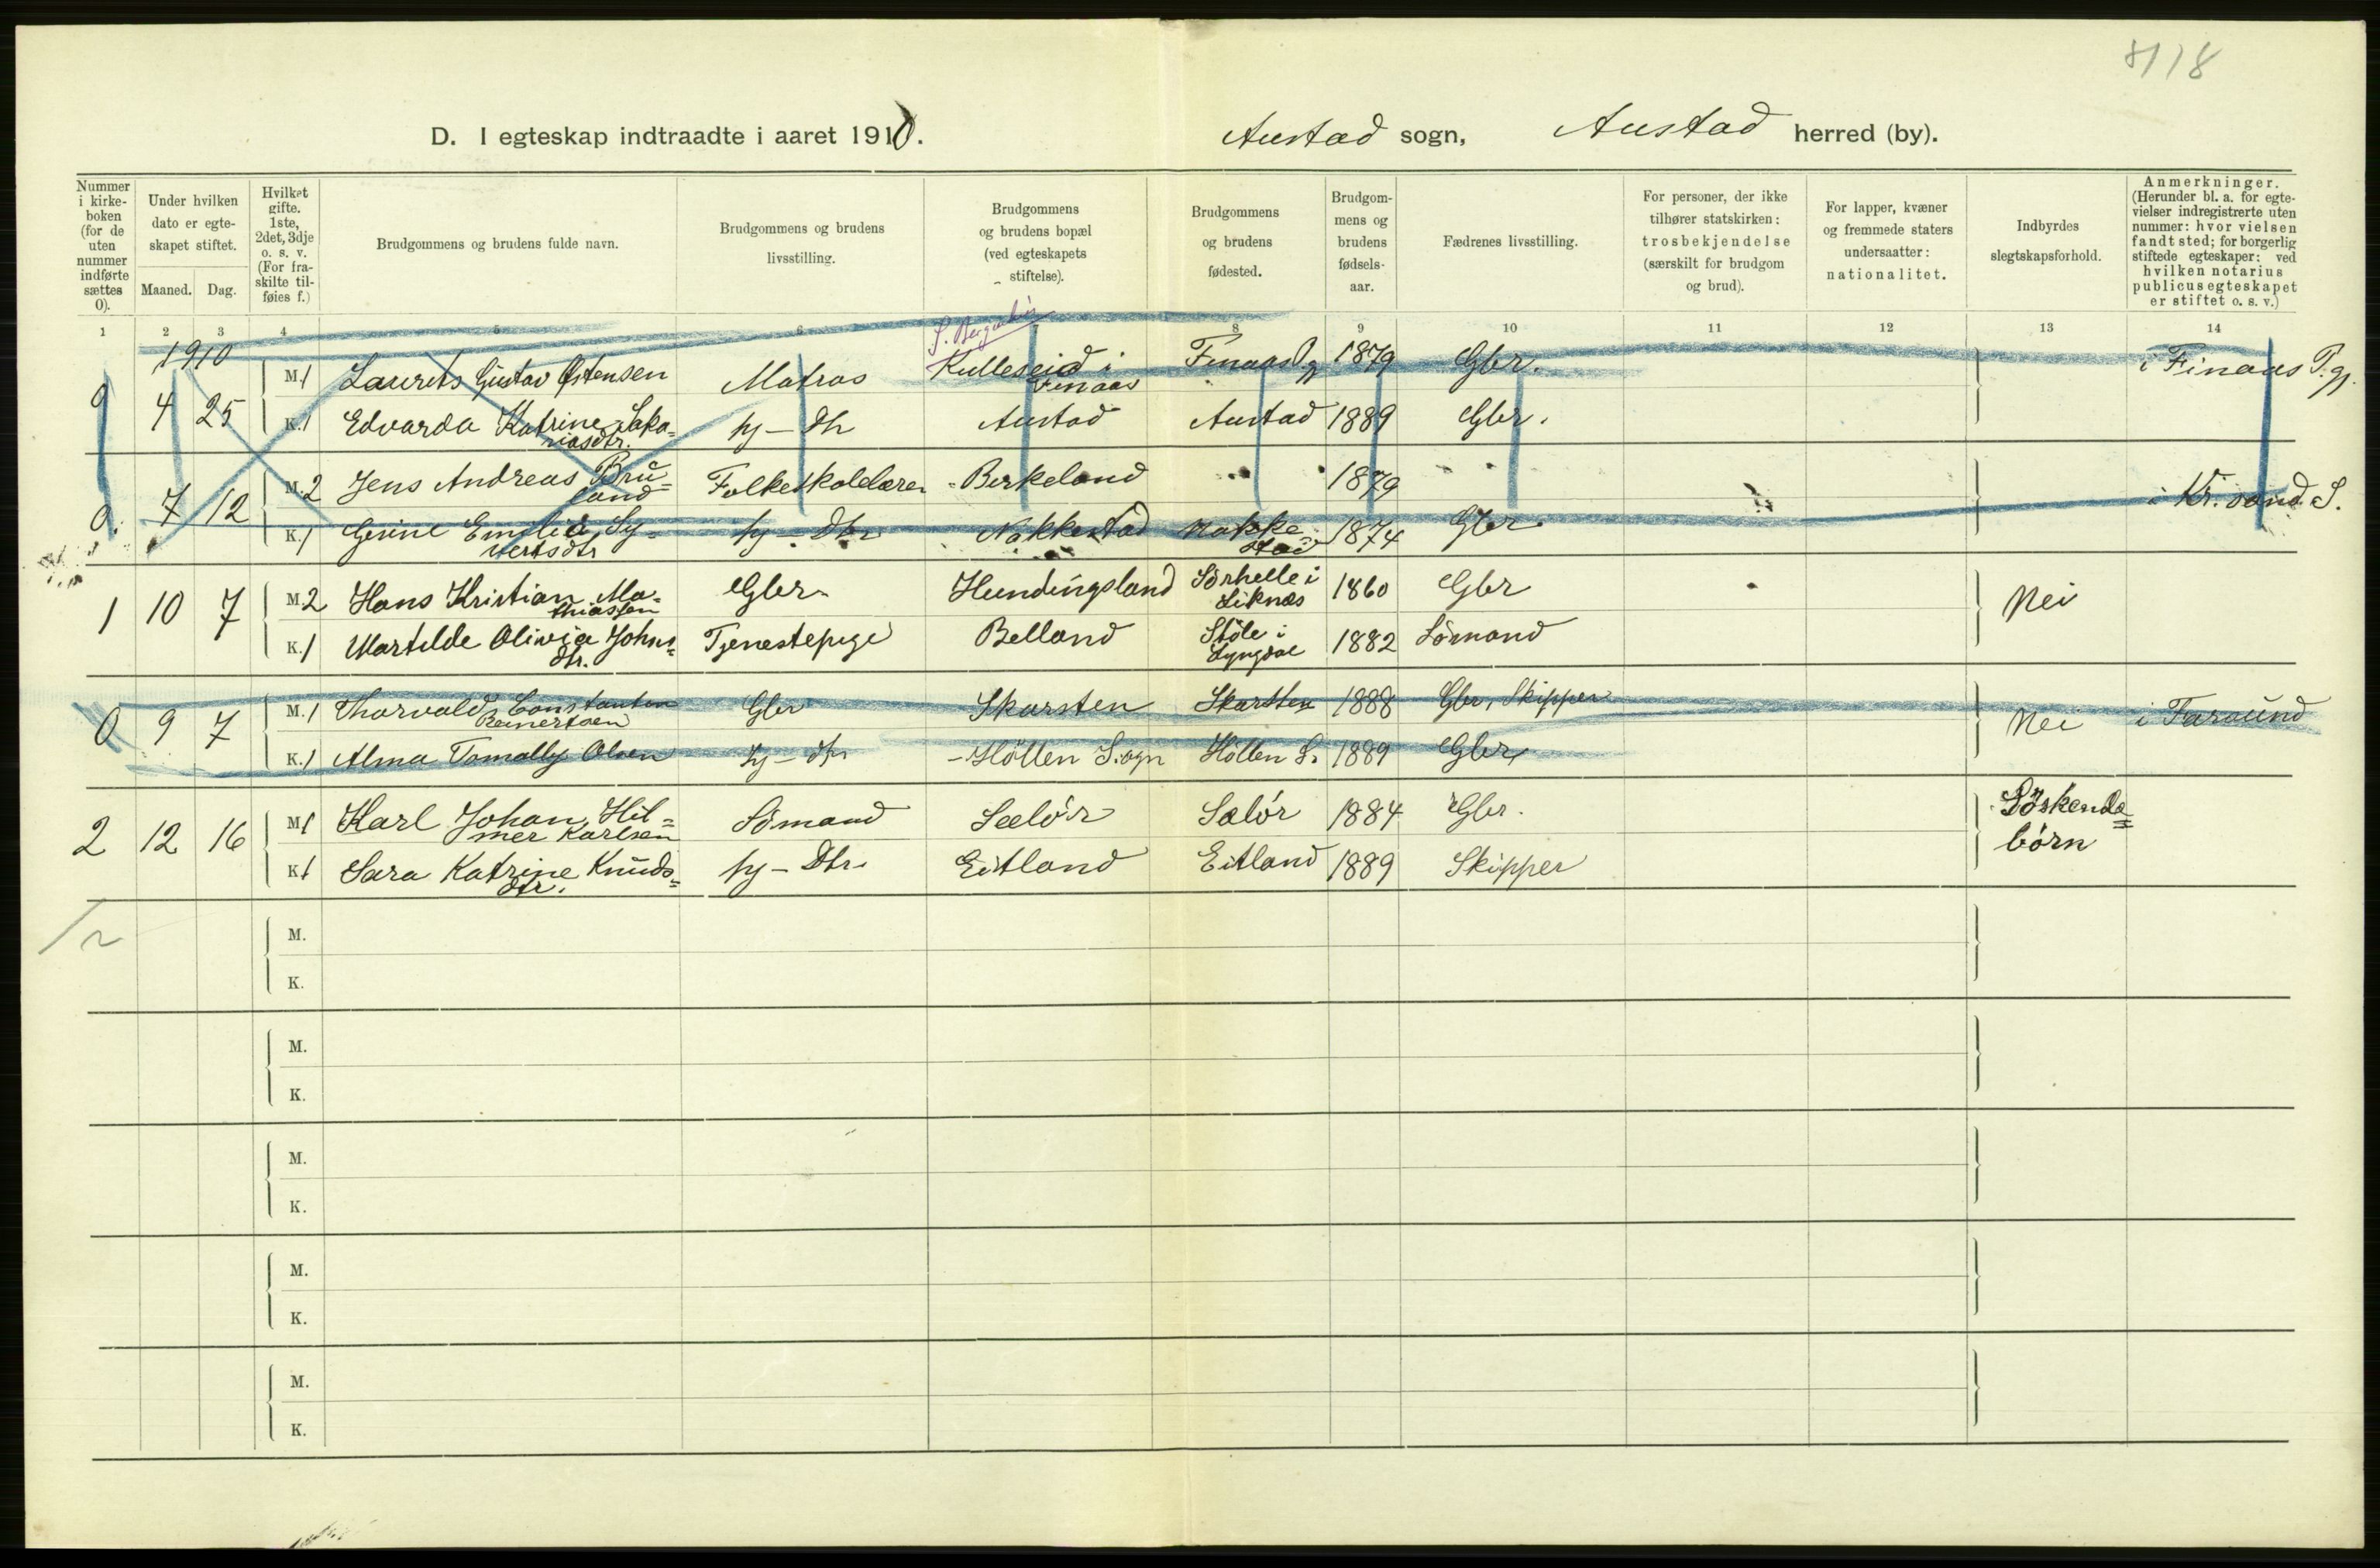 8118
D. I egteskap indtraadte i aaret 1910. Austad sogn, Austad herred (by).
Nummer i kirkeboken (for de uten nummer indførte sættes 0).
Under hvilken dato er egteskapet stiftet.
Maaned. Dag.
Hvilket gifte. 1ste, 2det, 3dje o. s. v. (For fraskilte tilføies f.)
Brudgommens og brudens fulde navn.
Brudgommens og brudens livsstilling.
Brudgommens og brudens bopæl (ved egteskapets stiftelse).
Brudgommens og brudens fødested.
Brudgommens og brudens fødselsaar.
Fædrenes livsstilling.
For personer, der ikke tilhører statskirken: trosbekjendelse (særskilt for brudgom og brud).
For lapper, kvæner og fremmede staters undersaatter: nationalitet.
Indbyrdes slegtskapsforhold.
Anmerkninger. (Herunder bl. a. for egtevielser indregistrerte uten nummer: hvor vielsen fandt sted; for borgerlig stiftede egteskaper: ved hvilken notarius publicus egteskapet er stiftet o. s. v.)
1 2 3 4 5 6 8 9 10 11 12 13 14
1910
0 4 25 M. 1 Laurits Gustav Østensen Matros Kulleseid i Finaas Finaas Pg 1879 Gbr. i Finaas P.gj.
K. 1 Edvarda Katrine Sakariasdtr. hj - Dtr Austad Austad 1889 Gbr.
0. 7 12 M. 2 Jens Andreas Bruland Folkeskolelærer Birkeland 1879 i Kr.sand S.
K. 1 Gerine Emilie Syvertsdtr hj - Dtr Nakkestad Nakkestad 1874 Gbr.
1 10 7 M. 2 Hans Kristian Mathiassen Gbr. Hundingsland Sörhelle i Liknes 1860 Gbr Nei
K. 1 Martilde Olivia Johnsdtr. Tjenestepige Belland Støle i Lyngdal 1882 Sömand
0 9 7 M. 1 Thorvald Constantin Reinertsen Gbr Skarsten Skarsten 1888 Gbr, Skipper Nei i Farsund
K. 1 Alma Tomally Olsen hj - dtr Höllen S.ogn Höllen S. 1889 Gbr
2 12 16 M 1 Karl Johan Hilmer Karlsen Sömand Selör Selör 1884 Gbr. Söskendebörn
K 1 Sara Katrine Knudsdtr. hj - Dtr. Eitland Eitland 1889 Skipper
2
M.
K.
M.
K.
M.
K.
M.
K.
M.
K.